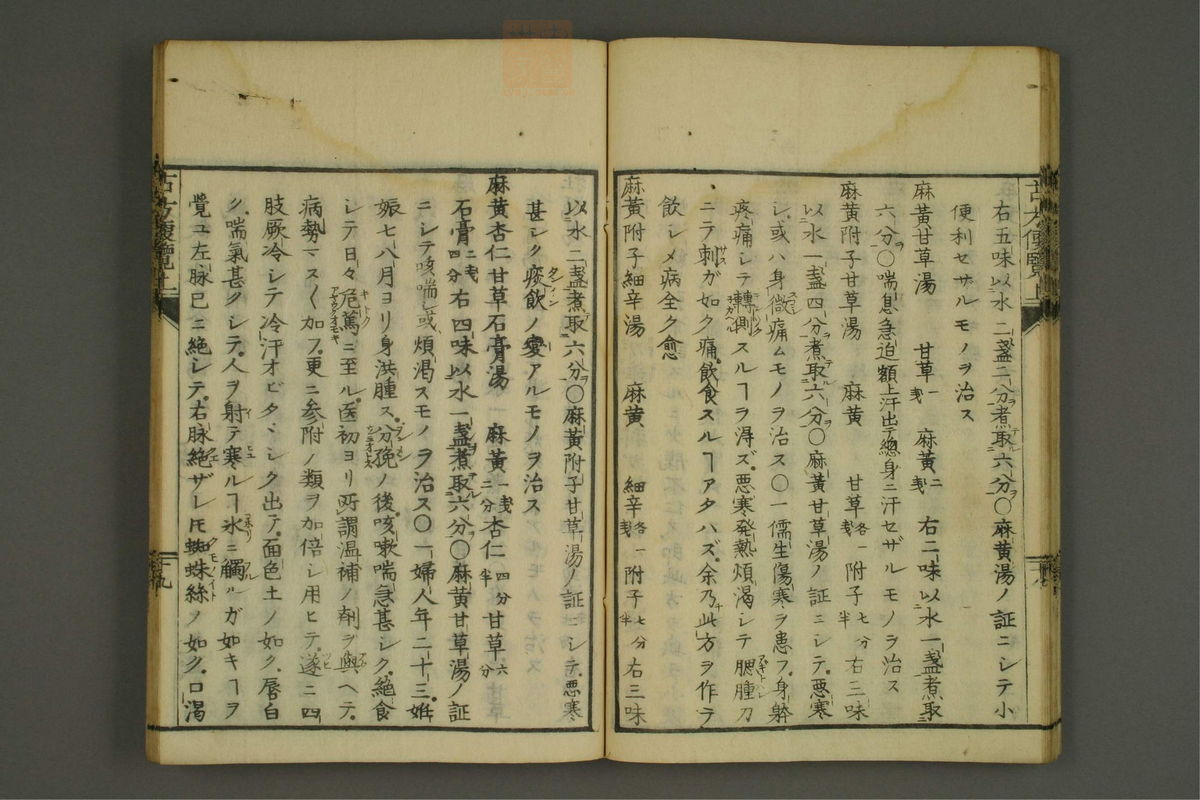 右五味以水二盞二分煮取六分〇麻黄湯ノ証ニシテ小
便利セサルモノヲ治ス
麻黄甘草湯 甘草一戔 麻黄二戔 右二味以水一盞煮取
六分〇喘息急迫額上汗出テ總身ニ汗セザルモノヲ治ス
麻黄附子甘草湯 麻黄 甘草各一戔 附子七分半 右三味
以水一盞四分煮取六分〇麻黄甘草湯ノ証ニシテ悪寒
シ或ハ身微痛ムモノヲ治ス〇一儒生傷寒ヲ患フ身躰
疼痛シテ轉側スルヿヲ得ズ悪寒発熱煩渇シテ腮腫刀
ニテ刺ガ如ク痛飲食スルヿアタハズ余乃此方ヲ作テ
飲シメ病全ク愈
麻黄附子細辛湯 麻黄 細辛各一戔 附子七分半 右三味
以水二盞煮取六分〇麻黄附子甘草湯ノ証ニシテ悪寒
甚シク痰飲ノ變アルモノヲ治ス
麻黄杏仁甘草石膏湯 麻黄一戔二分 杏仁四分半 甘草六分
石膏二戔四分 右四味以水一盞煮取六分〇麻黄甘草湯ノ証
ニシテ咳喘シ或煩渇スモノヲ治ス〇一婦人年二十三妊
娠七八月ヨリ身洪腫ス分娩ノ後咳嗽喘急甚シク絶食
シテ日々危篤ニ至ル医初ヨリ所謂温補ノ剤ヲ與ヘテ
病勢マス〱加フ更ニ参附ノ類ヲ加倍シ用ヒテ遂ニ四
肢厥冷シテ冷汗オビタヾシク出テ面色土ノ如ク唇白
ク喘氣甚クシテ人ヲ射テ寒ルヿ氷ニ觸ルガ如キヿヲ
覚ユ左脉已ニ絶シテ右脉絶ザレ𪜈蜘蛛絲ノ如ク口渇